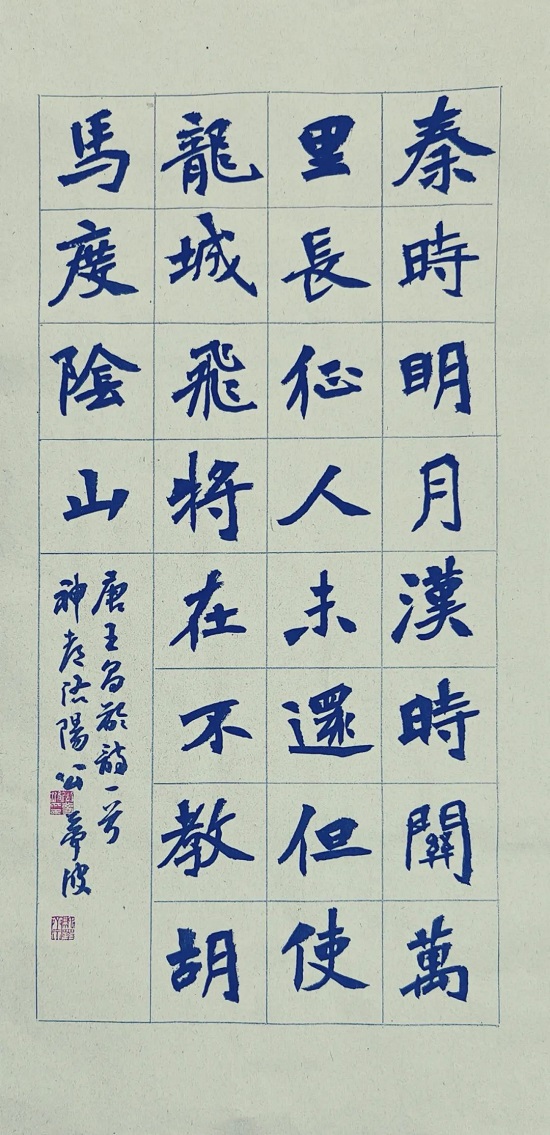 秦時明月漢時關萬
里長征人未還但使
龍城飛將在不教胡
馬度陰山
唐王昌齡詩一首
神都洛陽